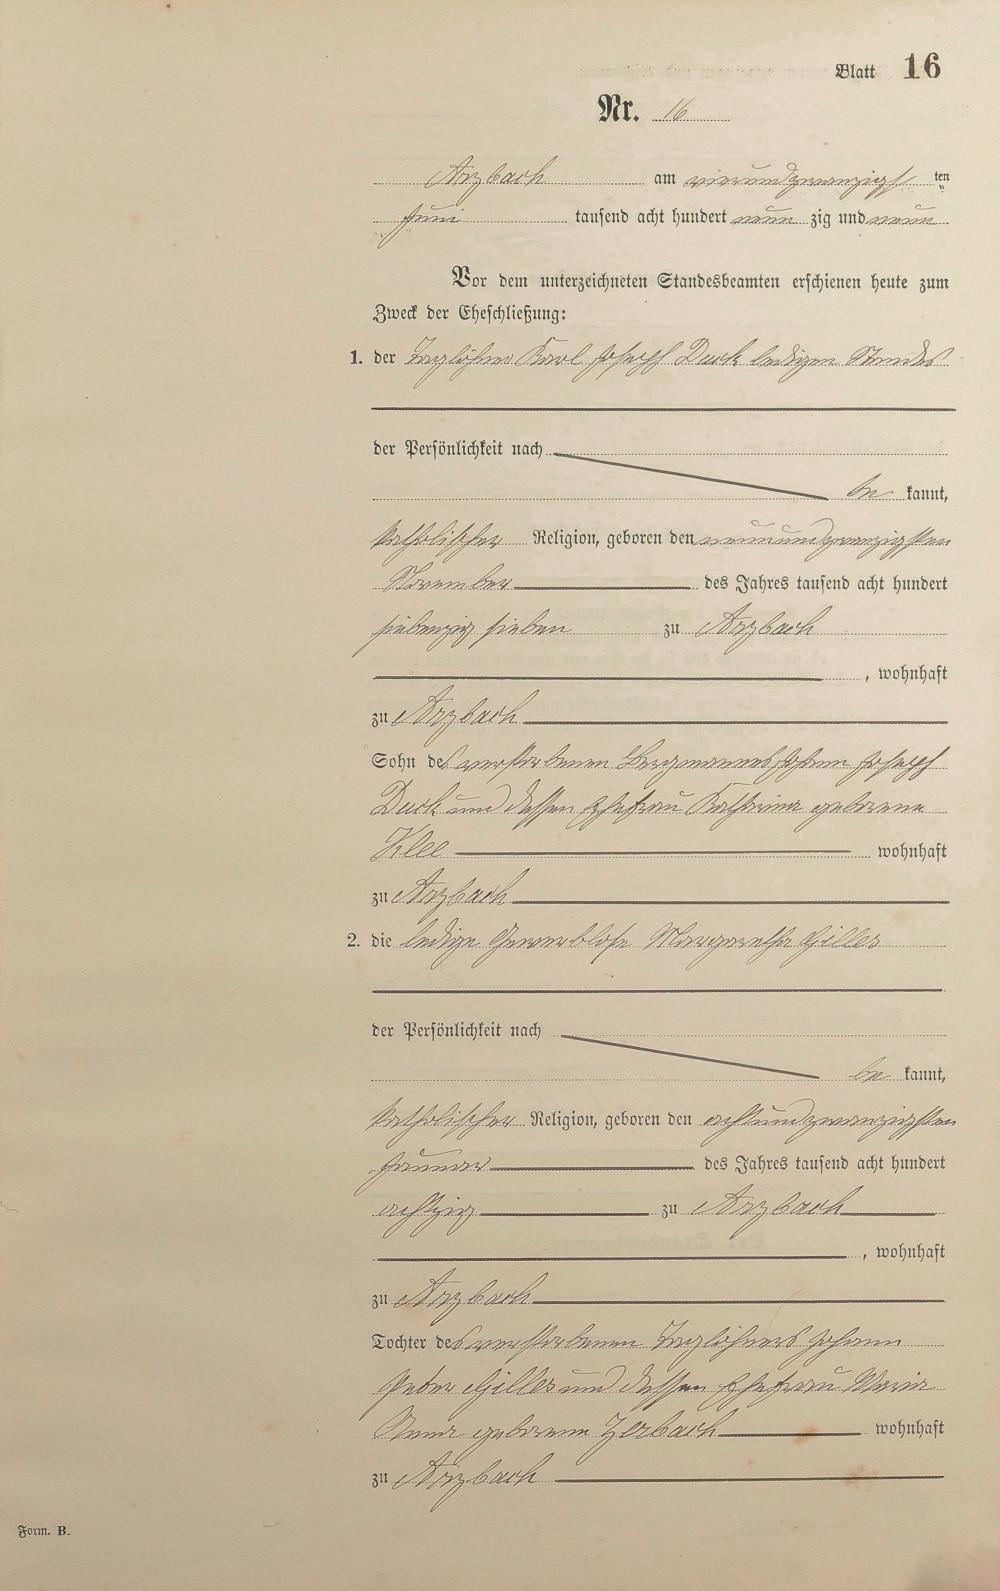 Blatt 16
Nr. 16
Arzbach am vierundzwanzigsten
Juni tausend acht hundert neun zig und neun
Vor dem unterzeichneten Standesbeamten erschienen heute zum
Zweck der Eheschließung:
1. der Taglöhner Karl Joseph Duck ledigen Standes
der Persönlichkeit nach
be kannt,
katholischer Religion, geboren den neunundzwanzigsten
November des Jahres tausend acht hundert
siebenzig sieben zu Arzbach
, wohnhaft
zu Arzbach
Sohn des verstorbenen Bergmannes Johann Joseph
Duck und dessen Ehefrau Katharina geborene
Klee wohnhaft
zu Arzbach
2. die ledige Gewerblose Margaretha Gilles
der Persönlichkeit nach
be kannt,
katholischer Religion, geboren den achtundzwanzigsten
Januar des Jahres tausend acht hundert
achtzig zu Arzbach
, wohnhaft
zu Arzbach
Tochter des verstorbenen Taglöhners Johann
Peter Gilles und dessen Ehefrau Maria
Anna geborene Zerbach wohnhaft
zu Arzbach
Form. B.